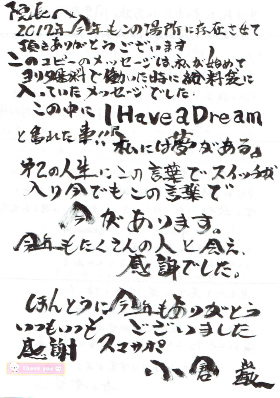 院長へ
2017年 今年もこの場所に存在させて
頂きありがとうございます
このコピーのメッセージは、私が始めて
で働いた時に給料袋に
入っていたメッセージでした.
この中に I Have a Dream
と書れた事!!「私には夢がある。」
の人生にこの言葉でスイッチが
入り今でもこの言葉で
今があります。
今年もたくさんの人と会え、
感謝でした。
ほんとうに今年もありがとう
いつもいつも ございました
感謝
小倉
Thank you